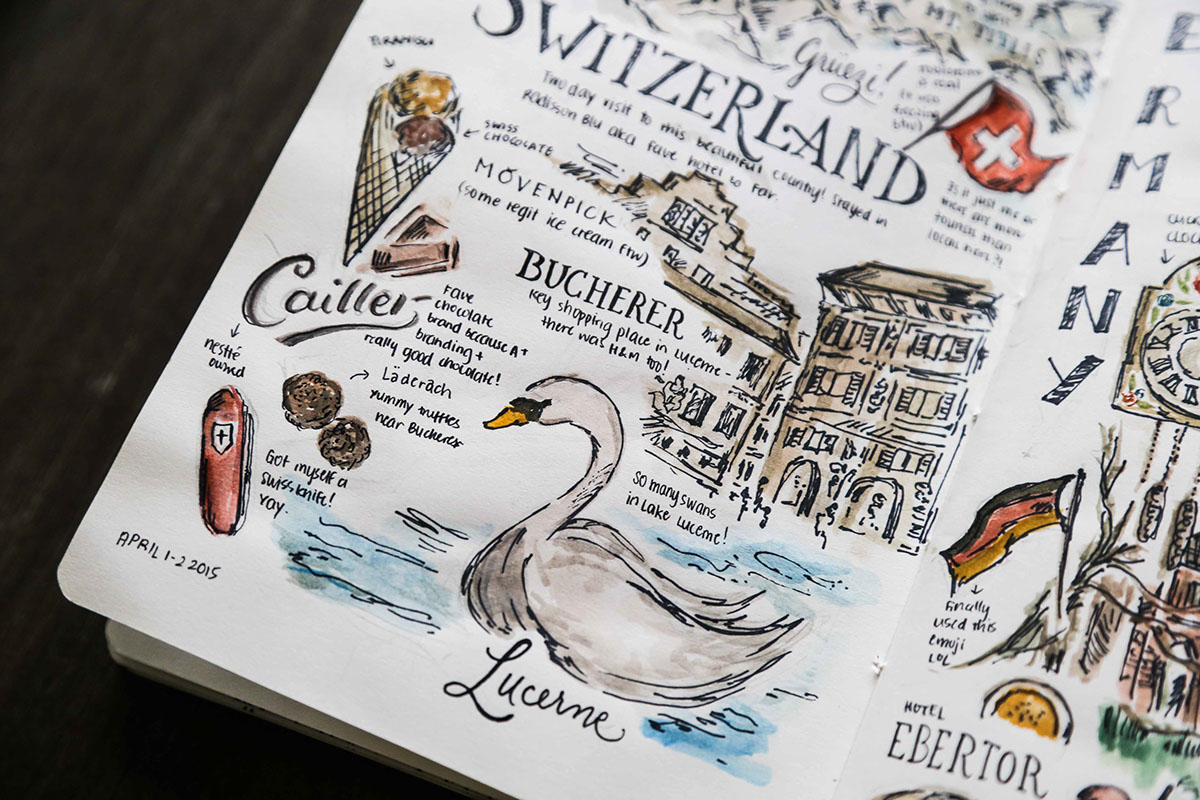 MT TITLIS
SWITZERLAND
Grüezi!
TIRAMISU
Two day visit to this beautiful country! Stayed in
Radisson Blu aka fave hotel so far.
SWISS
CHOCOLATE
MÖVENPICK
(some legit ice cream FTW)
Is it just me or
there are more
tourists than
local here?!
BUCHERER
Key shopping place in Lucerne -
there was H&M too!
Cailler
Fave
chocolate
brand because A+
branding +
really good chocolate!
nestlé
owned
Läderach
yummy truffles
near Bucherer
Got myself a
swiss knife!
yay.
So many swans
in Lake Lucerne!
APRIL 1-2 2015
Lucerne
ERMANY
finally
used this
emoji
LOL
HOTEL
EBERTOR